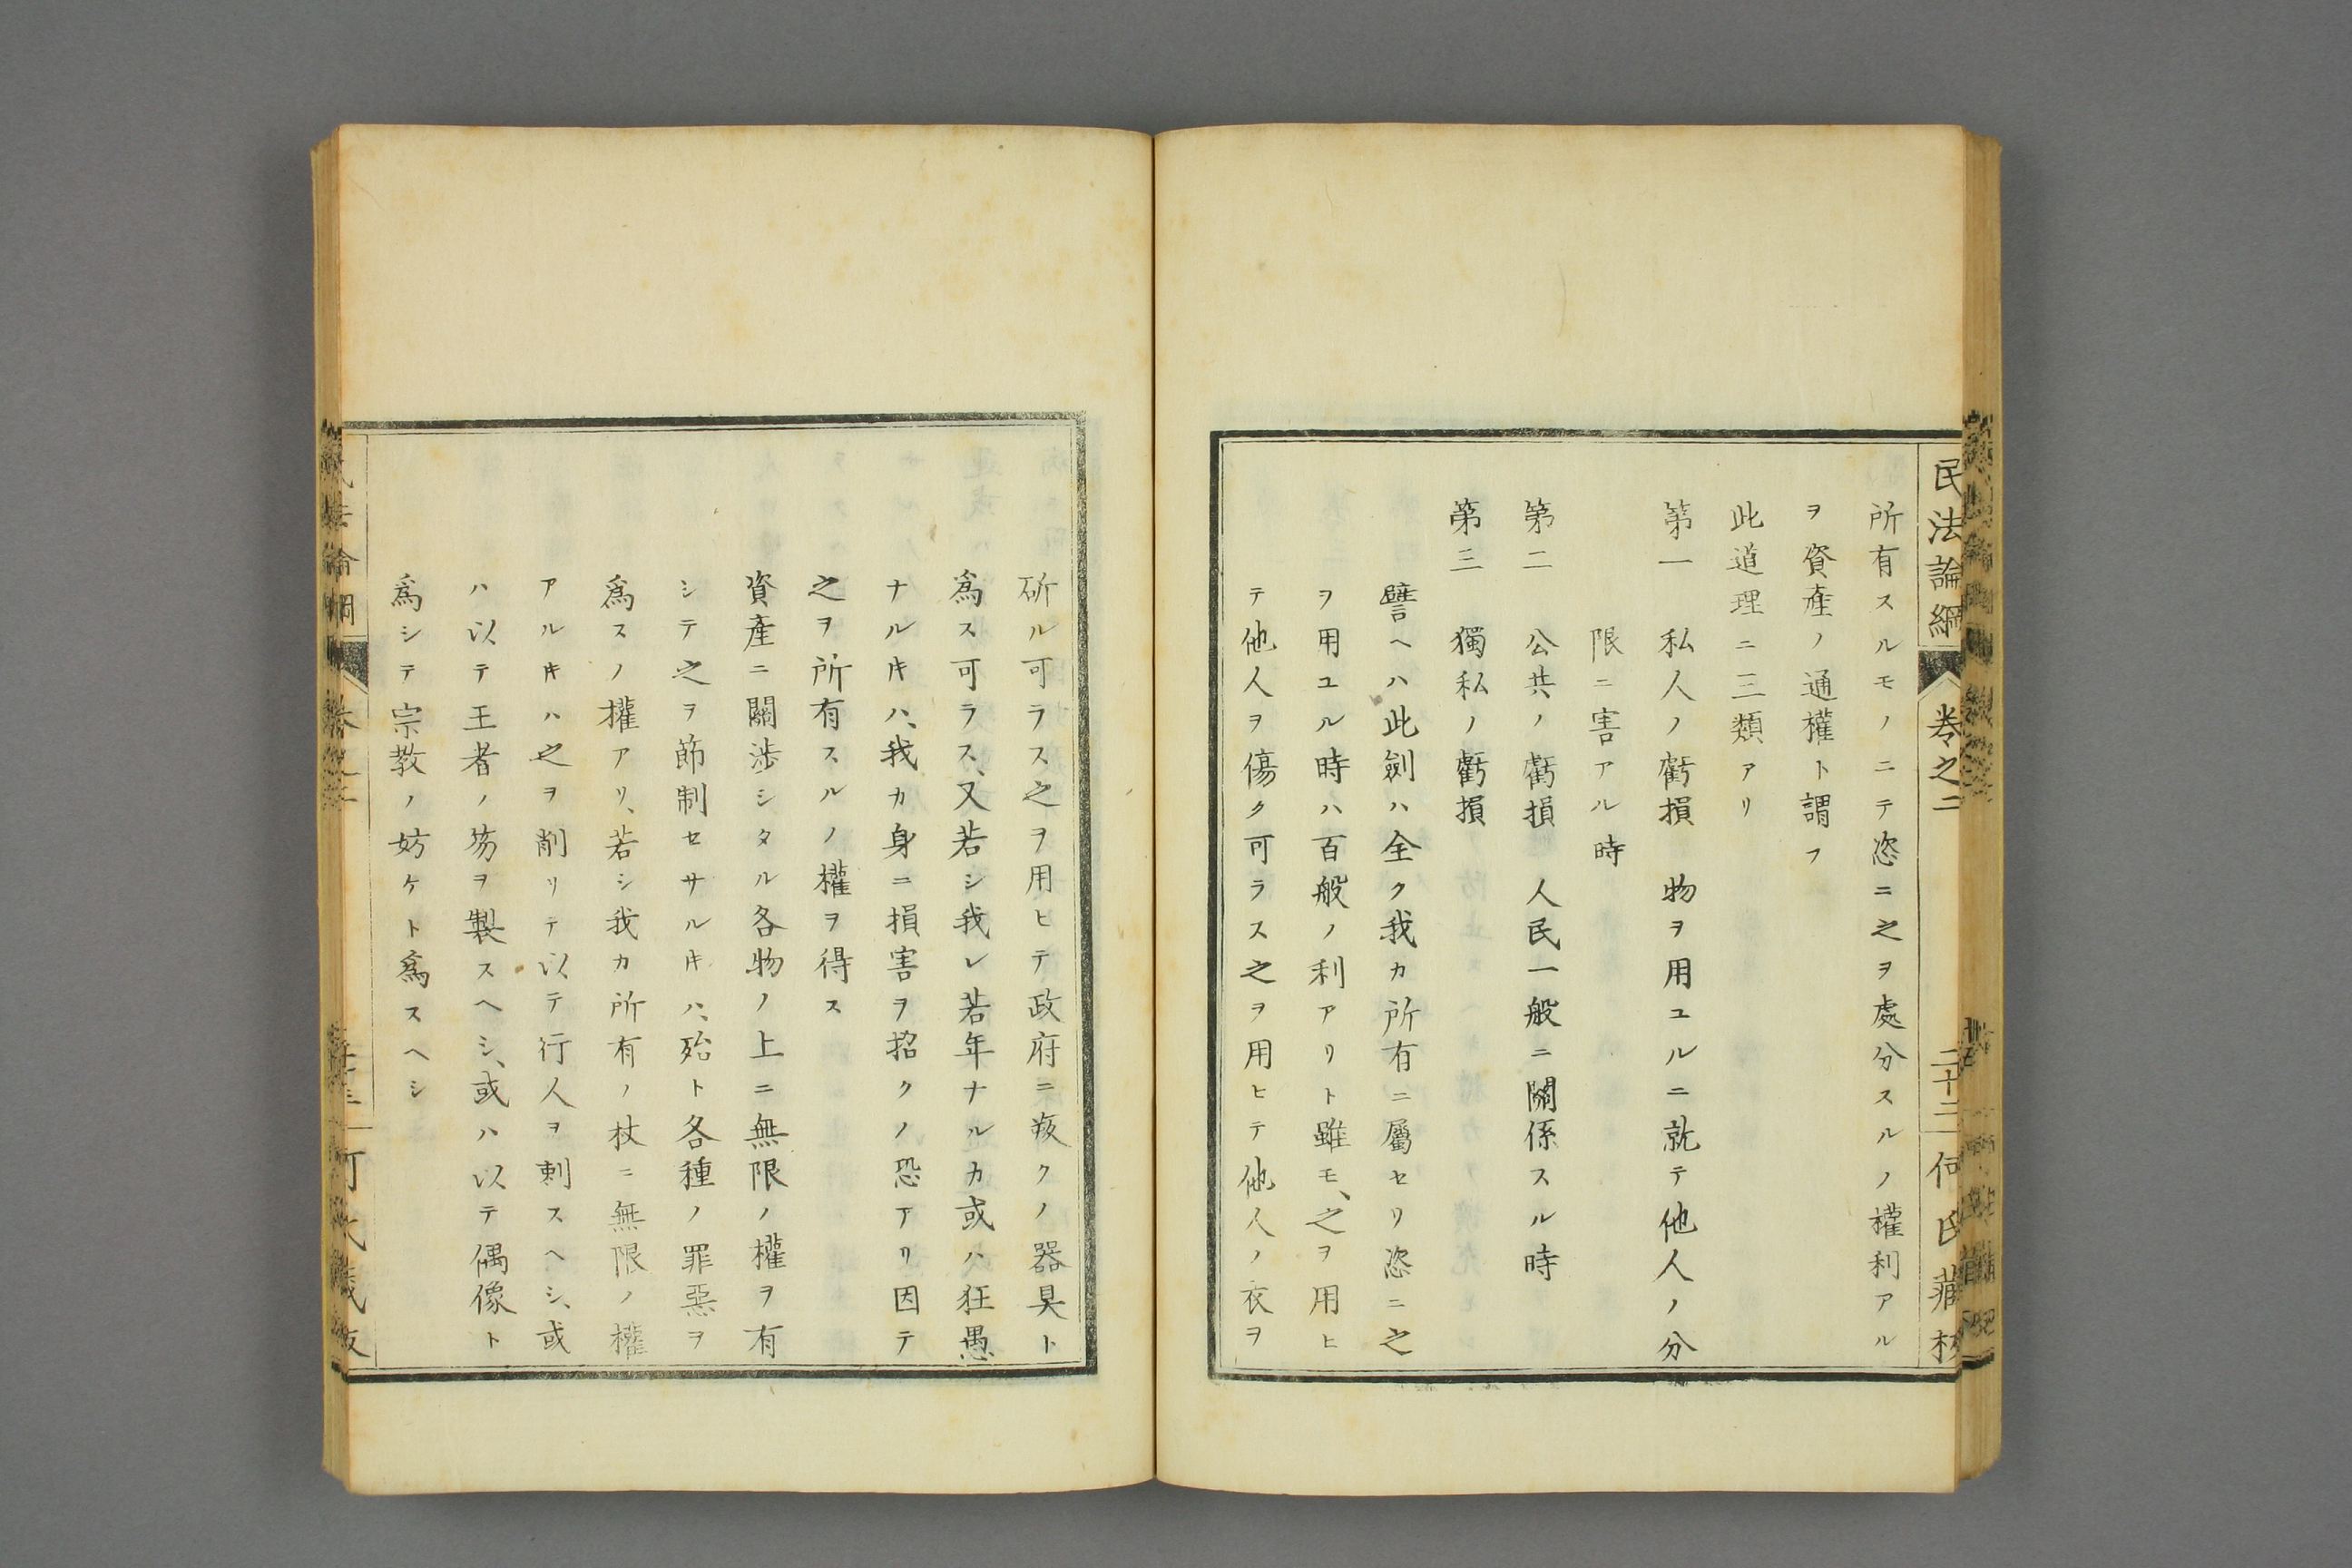 民法論綱 卷之二 二十二 何氏藏板
所有スルモノニテ恣ニ之ヲ處分スルノ權利アル
ヲ資產ノ通權ト謂フ
此道理ニ三類アリ
第一 私人ノ虧損 物ヲ用ユルニ就テ他人ノ分
限ニ害アル時
第二 公共ノ虧損 人民一般ニ關係スル時
第三 獨私ノ虧損
譬ヘハ此劍ハ全ク我カ所有ニ屬セリ恣ニ之
ヲ用ユル時ハ百般ノ利アリト雖モ、之ヲ用ヒ
テ他人ヲ傷ク可ラス之ヲ用ヒテ他人ノ衣ヲ
斫ル可ラス之ヲ用ヒテ政府ニ叛クノ器具ト
爲ス可ラス、又若シ我レ若年ナルカ或ハ狂愚
ナルヿハ、我カ身ニ損害ヲ招クノ恐アリ因テ
之ヲ所有スルノ權ヲ得ス
資產ニ關渉シタル各物ノ上ニ無限ノ權ヲ有
シテ之ヲ節制セサルキハ、殆ト各種ノ罪惡ヲ
爲スノ權アリ、若シ我カ所有ノ杖ニ無限ノ權
アルキハ之ヲ削リテ以テ行人ヲ刺スヘシ、或
ハ以テ王者ノ笏ヲ製スヘシ、或ハ以テ偶像ト
爲シテ宗教ノ妨ケト爲スヘシ